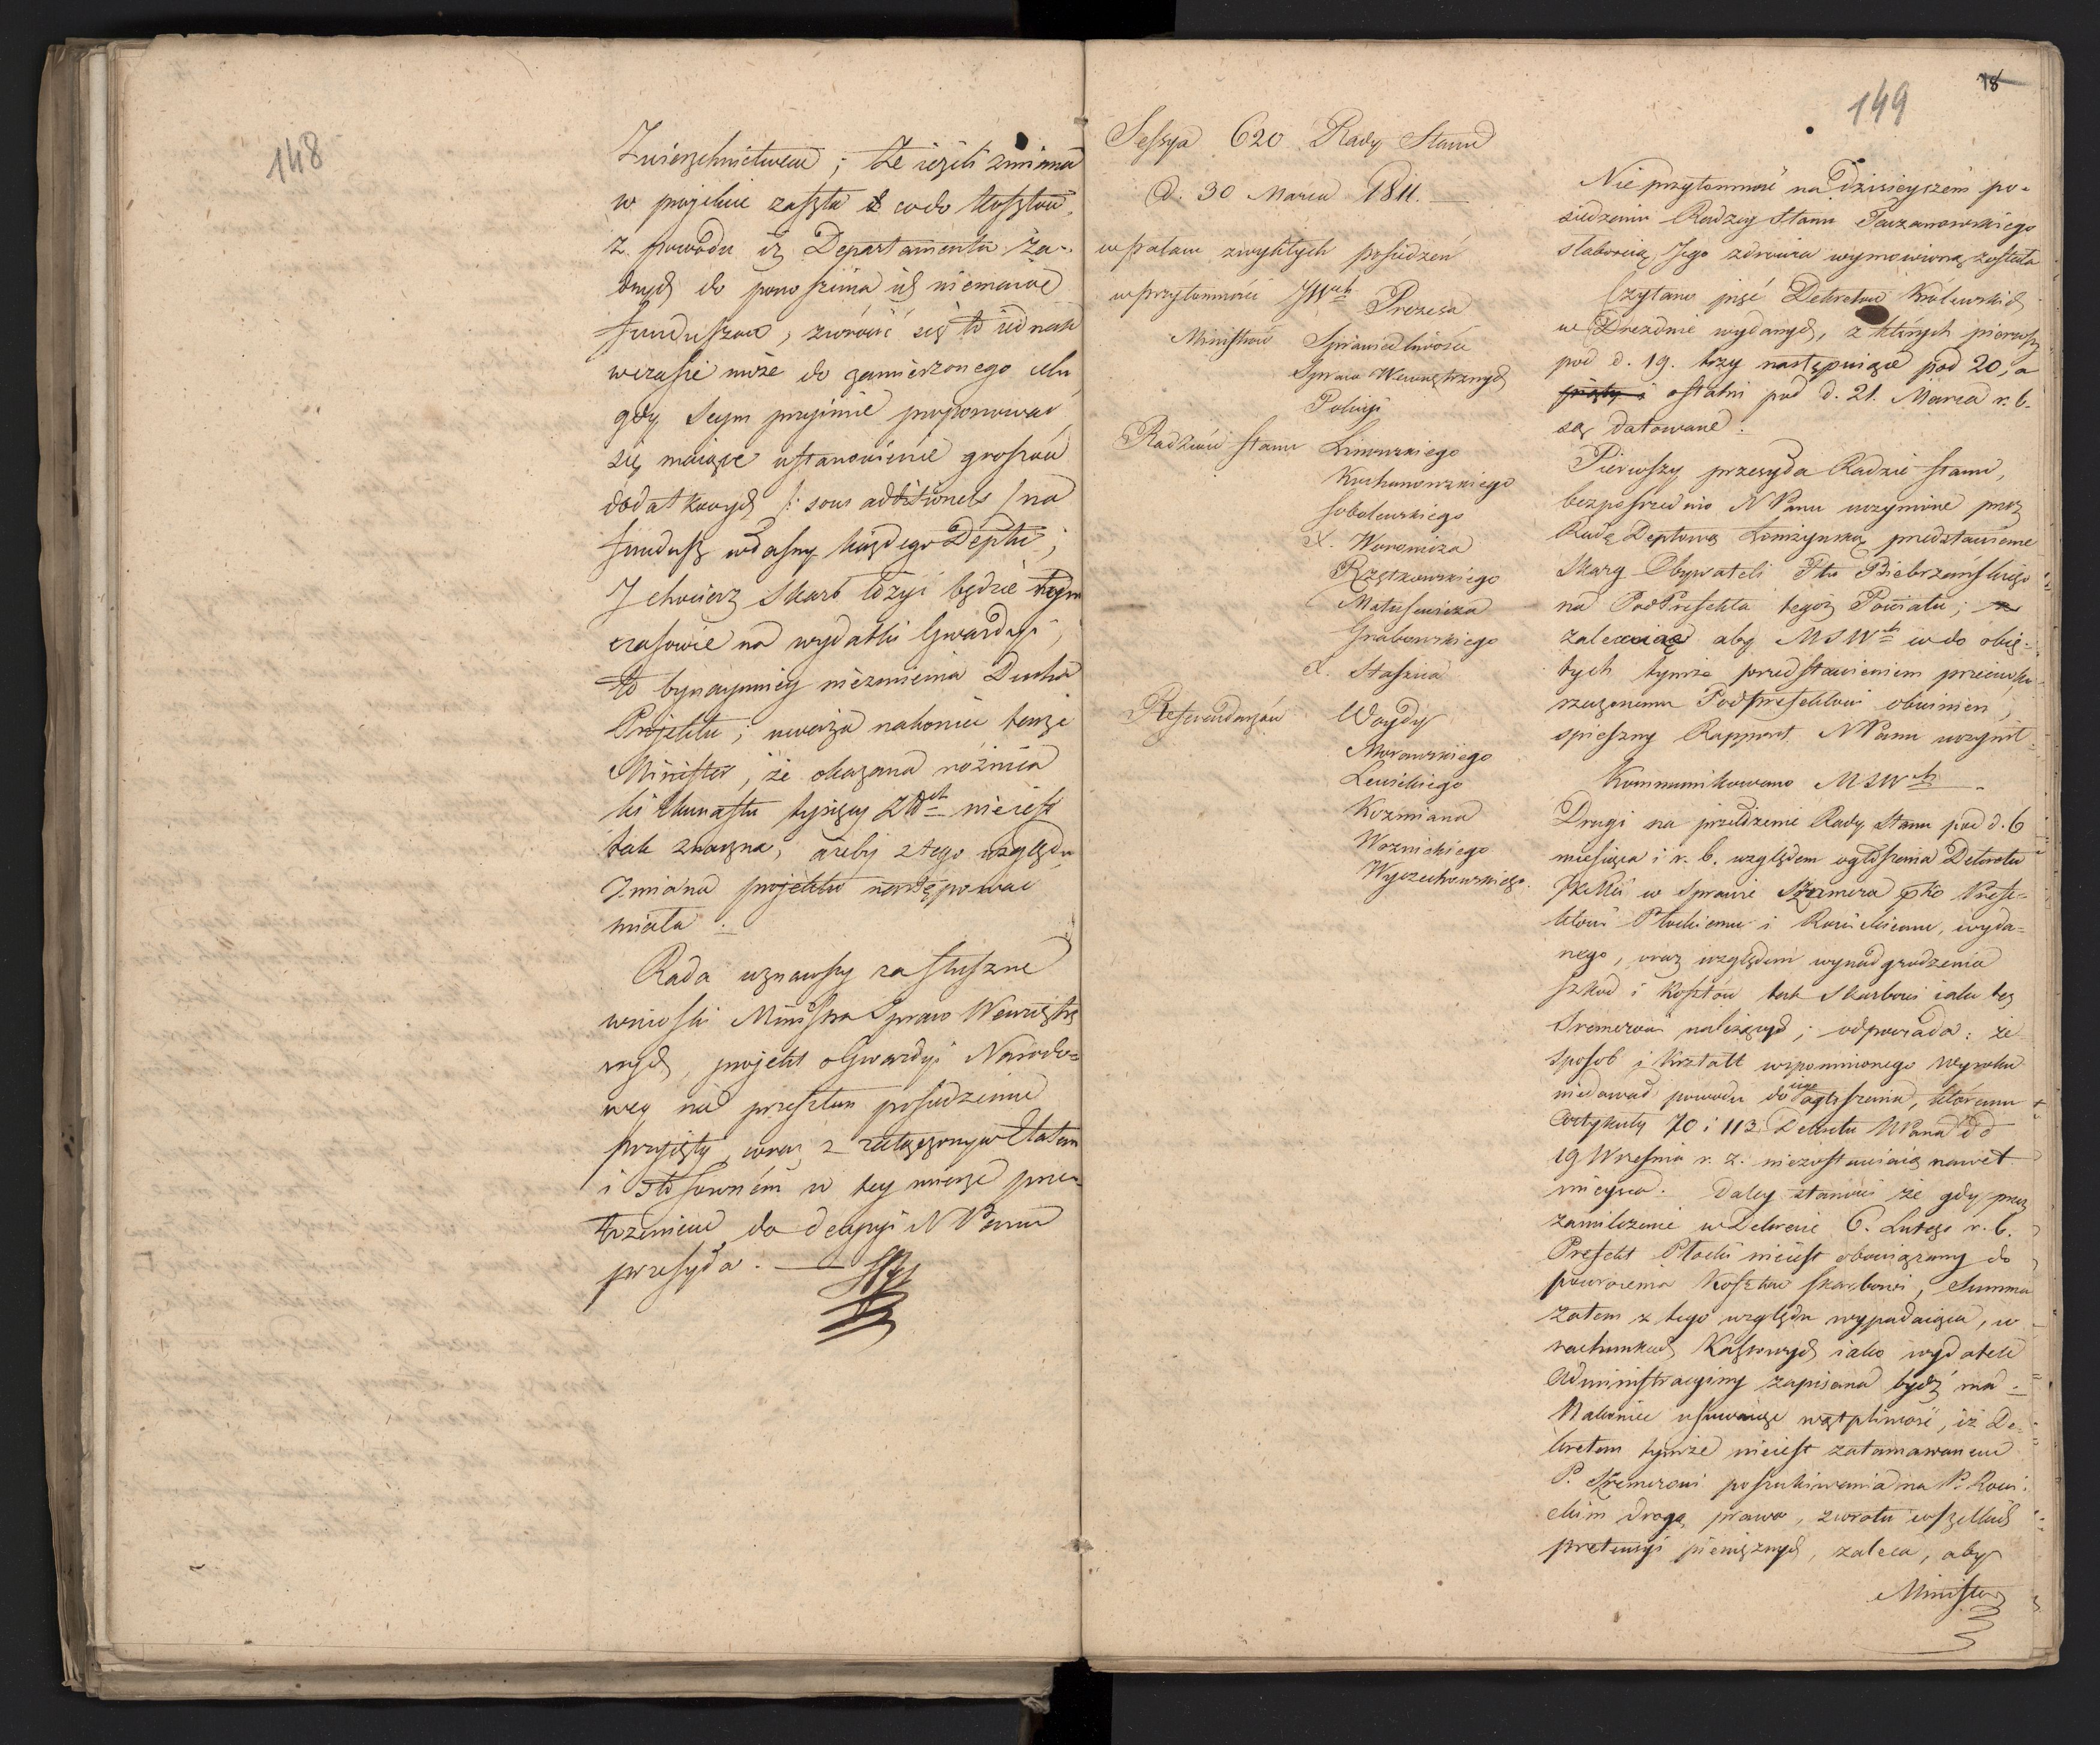 148
Zwierzchnictwem; że ieżeli zmiana
w projekcie zaszła co do kosztów,
z powodu iż Departamenta ża-
dnych do ponoszenia ich niemaiąc
funduszów, zwrócić się to iednak
wczasie może do zamierzonego celu
gdy Seym przyimie proponować
się maiące ustanowienie groszów
dodatkowych /: sous additionels / na
fundusz własny każdego Deptu;
I chociaż Skarb łożyć będzie tym
czasowie na wydatki Gwardyi,
to bynaymniey niezmienia Ducha
Projektu; uważa nakoniec tenże
Minister, że okazana różnica
kilkunastu tysięcy Złłch nieiest
tak znaczna, ażeby z tego względu
zmiana projektu następować
miała.
Rada uznawszy za słuszne
wnioski Ministra Spraw Wewnętrz
nych, projekt o Gwardyi Narodo-
wey na przeszłem posiedzeniu
przyięty, wraz z załączonym Etatem
i stosowném w tey mierze prze-
łożeniem, do decyzyi NPanu
przesyła.
149
78
Sessya 620 Rady Stanu
d. 30 Marca 1811.
w pałacu zwykłych posiedzeń
w przytomności JWch Prezesa
Ministrów Sprawiedliwości
Spraw Wewnętrznych
Policyi
Radzców Stanu Linowskiego
Kochanowskiego
Sobolewskiego
X. Woronicza
Rzętkowskiego
Matusewicza
Grabowskiego
X. Staszica
Referendarzów Woydy
Morawskiego
Lewickiego
Kozmiana
Woznickiego
Wyczechowskiego.
Nie przytomność na dzisieyszém po-
siedzeniu Radzcy Stanu Taczanowskiego
słabością Jego zdrowia wymowioną została
Czytano pięć Dekretów Królewskich
w Dreźnie wydanych, z których pierwszy
pod d. 19. trzy następuiące pod 20, a
piąty i ostatni pod d. 21. Marca r. b.
są datowane.
Pierwszy przesyła Radzie Stanu,
bezpośrednio NPanu uczynione przez
Radę Deptową Łomżyńską przedstawienie
Skarg Obywateli Ptu Biebrzańskiego
na PodPrefekta tegoż Powiatu;
zalecaiąc aby MSWch co do obię-
tych tymże przedstawieniem przeciwko
rzeczonemu Podprefektowi obwinień,
spieszny Rapport NPanu uczynił
Kommunikowano MSWch.
Drugi na przełożenie Rady Stanu pod d. 6
miesiąca i r. b. względem ogłoszenia Dekretu
w sprawie Szremera pko Prefe-
ktowi Płockiemu i Rościckiemu, wyda-
nego, oraz względem wynadgrodzenia
szkod i kosztów tak Skarbowi iako też
Sremerowi należących; odpowiada: że
sposób i kształt wspomnionego Wyroku
niedawał powodu do iego ogłoszenia, któremu
Artykuły 70 i 113 Dekretu NPana d d
19 Września r. z. niezostawiaią nawet
mieysca. Daley stanowi że gdy przez
zamilczenie w Dekrecie 6. Lutego r. b.
Prefekt Płocki nieiest obowiązany do
powrócenia Kosztów skarbowi, Summa
zatem z tego względu wypadaiąca, w
rachunkach Kassowych iako wydatek
Administracyiny zapisana bydź ma.
Nakoniec usuwaiąc wątpliwość, iż De-
kretem tymże nieiest zatamowanem
P. Sremerowi poszukiwania na P. Rości-
ckim drogą prawa, zwrotu wszelkich
pretensyi pieniężnych, zaleca, aby
Minister